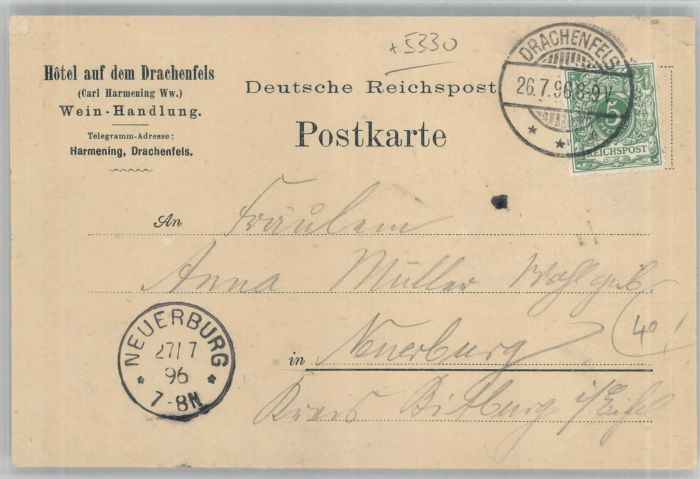 +5330
Hôtel auf dem Drachenfels
(Carl Harmening Ww.)
Wein-Handlung.
Telegramm-Adresse:
Harmening, Drachenfels.
Deutsche Reichspost
Postkarte
DRACHENFELS
26.7.96 8-9 V
5
REICHSPOST
An Fräulein
Anna Müller Wohlgeb.
in Neuerburg
Kreis Bitburg i/Eifel
40
NEUERBURG
27/7
96
7-8N